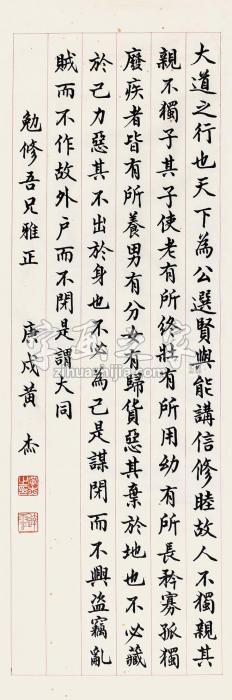 大道之行也天下為公選賢與能講信修睦故人不獨親其
親不獨子其子使老有所終壯有所用幼有所長矜寡孤獨
廢疾者皆有所養男有分女有歸貨惡其棄於地也不必藏
於己力惡其不出於身也不必為己是謀閉而不興盜竊亂
賊而不作故外戶而不閉是謂大同
勉修吾兄雅正
庚戌黃杰
zihuazhijia.com